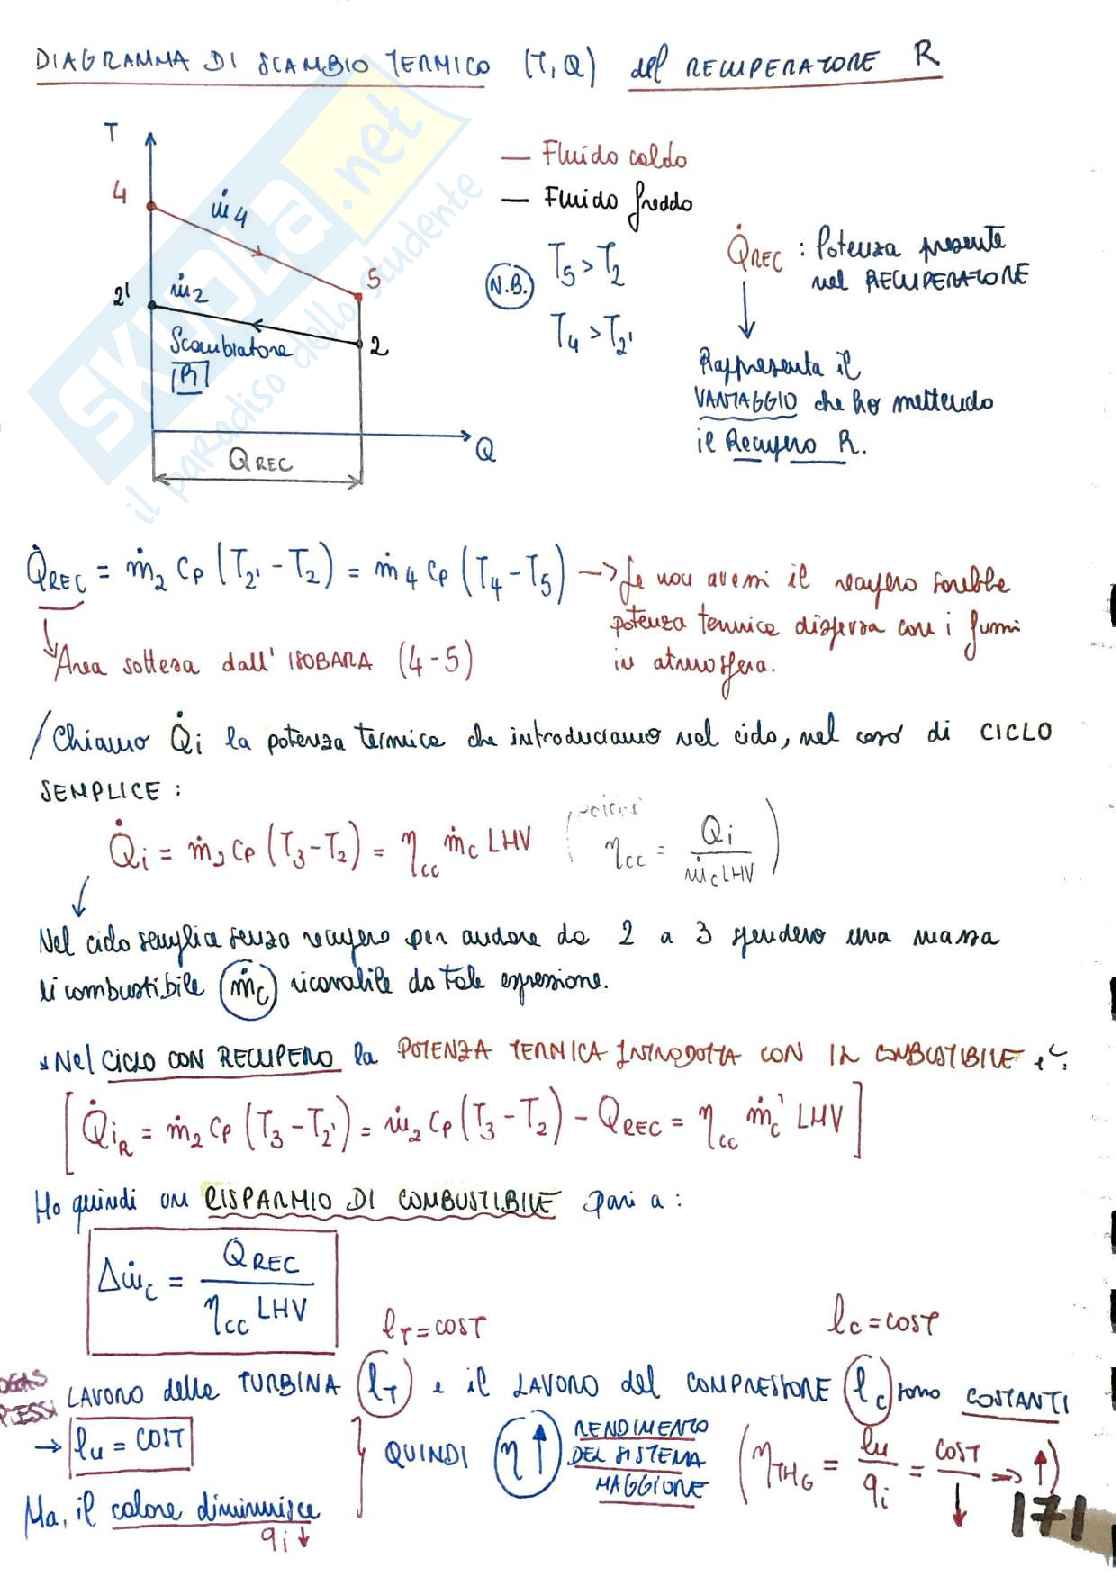 DIAGRAMMA DI SCAMBIO TERMICO (T, Q) del RECUPERATORE R
T
4
ṁ4
5
2'
ṁ2
2
Scambiatore
R
Q
QREC
— Fluido caldo
— Fluido freddo
N.B. T5 > T2
T4 > T2'
Q̇REC : Potenza presente
nel RECUPERATORE
Rappresenta il
VANTAGGIO che ho mettendo
il Recupero R.
SKUOLA.net
il paradiso dello studente
Q̇REC = ṁ2 cp (T2' - T2) = ṁ4 cp (T4 - T5) → Se non avessi il recupero sarebbe
potenza termica dispersa con i fumi
in atmosfera.
Area sottesa dall' ISOBARA (4-5)
/ Chiamo Q̇i la potenza termica che introduciamo nel ciclo, nel caso di CICLO
SEMPLICE :
Q̇i = ṁ2 cp (T3 - T2) = ηcc ṁc LHV ( ηcc = Qi / ṁc LHV )
Nel ciclo semplice senza recupero per andare da 2 a 3 spendero una massa
di combustibile ṁc ricavabile da tale espressione.
Nel CICLO CON RECUPERO la POTENZA TERMICA INTRODOTTA CON IL COMBUSTIBILE è:
[ Q̇iR = ṁ2 cp (T3 - T2') = ṁ2 cp (T3 - T2) - QREC = ηcc ṁc' LHV ]
Ho quindi un RISPARMIO DI COMBUSTIBILE pari a :
Δṁc = QREC / ηcc LHV
lT = COST
lc = COST
LAVORO della TURBINA lT e il LAVORO del COMPRESSORE lc sono COSTANTI
→ lu = COST
QUINDI η ↑ RENDIMENTO
DEL SISTEMA
MAGGIORE
( ηTHG = lu / qi = COST / ↓ => ↑ )
Ma, il calore diminuisce
qi ↓
171